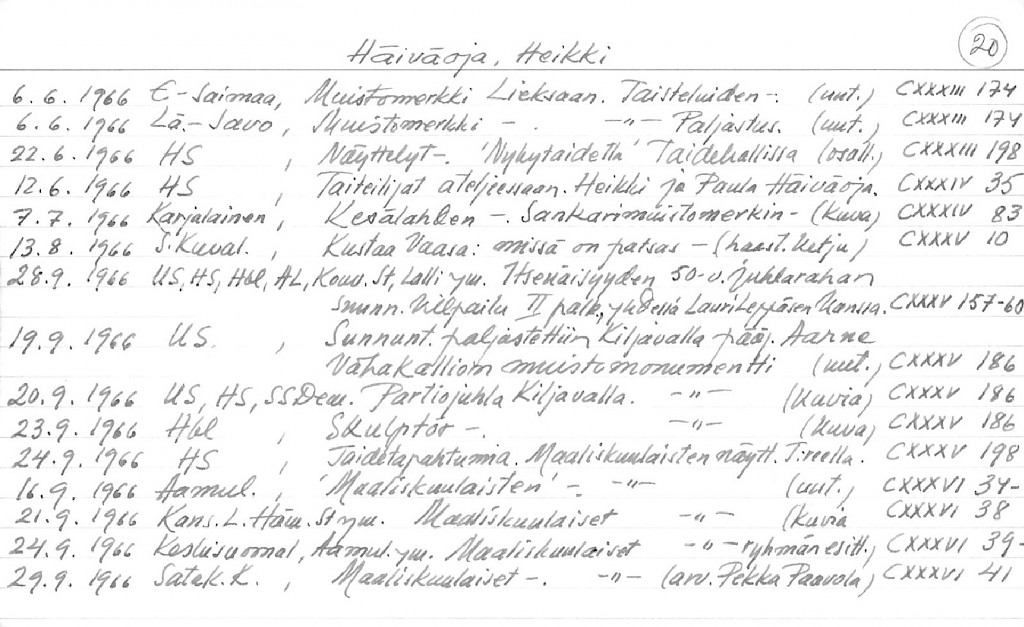 20
Häiväoja, Heikki
6.6.1966 E-Saimaa, Muistomerkki Lieksaan. Taisteluiden-. (uut.) CXXXIII 174
6.6.1966 Lä.-Savo, Muistomerkki -. -"- Paljastus. (uut.) CXXXIII 174
22.6.1966 HS, Näyttelyt-. 'Nykytaidetta' Taidehallissa (osall.) CXXXIII 198
12.6.1966 HS, Taiteilijat ateljeessaan. Heikki ja Paula Häiväoja. CXXXIV 35
7.7.1966 Karjalainen, Kesälahden -. Sankarimuistomerkin- (kuva) CXXXIV 83
13.8.1966 S.Kuval., Kustaa Vaasa: missä on patsas - (haast. Ketju) CXXXV 10
28.9.1966 US, HS, Hbl, AL, Kouv.St, Lalli ym. Itsenäisyyden 50-v. juhlarahan
suunn. kilpailu II palk., yhdessä Lauri Leppäsen kanssa. CXXXV 157-60
19.9.1966 US., Sunnunt. paljastettiin Kiljavalla pääj. Aarne
Vähäkallion muistomonumentti (uut.) CXXXV 186
20.9.1966 US, HS, SSDem. Partiojuhla Kiljavalla. -"- (kuvia) CXXXV 186
23.9.1966 Hbl, Skulptör -. -"- (kuva) CXXXV 186
24.9.1966 HS, Taidetapahtuma. Maaliskuulaisten näytt. T:reella. CXXXV 198
16.9.1966 Aamul., 'Maaliskuulaisten' -. -"- (uut.) CXXXVI 34-
21.9.1966 Kans.L. Häm.St ym. Maaliskuulaiset -"- (kuvia CXXXVI 38
24.9.1966 Keskisuomal, Aamul. ym. Maaliskuulaiset -"- ryhmän esitt.) CXXXVI 39-
29.9.1966 Satak.K., Maaliskuulaiset -. -"- (arv. Pekka Paavola) CXXXVI 41